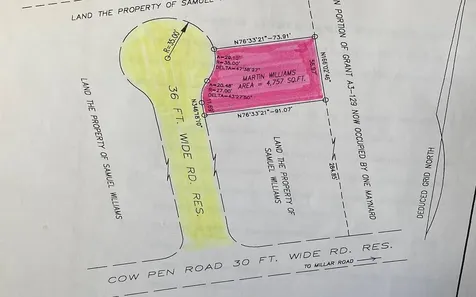 LAND THE PROPERTY OF SAMUEL
R=35.00'
N76°33'21"-73.91'
R=35.00'
DELTA=47°38'27"
MARTIN WILLIAMS
AREA = 4,757 SQ.FT.
R=27.00'
DELTA=43°27'50"
N76°33'21"-91.07'
36 FT. WIDE RD. RES.
LAND THE PROPERTY OF SAMUEL WILLIAMS
LAND THE PROPERTY OF
SAMUEL WILLIAMS
284.85'
N PORTION OF GRANT A3-129 NOW OCCUPIED BY ONE MAYNARD
DEDUCED GRID NORTH
COW PEN ROAD 30 FT. WIDE RD. RES.
TO MILLAR ROAD